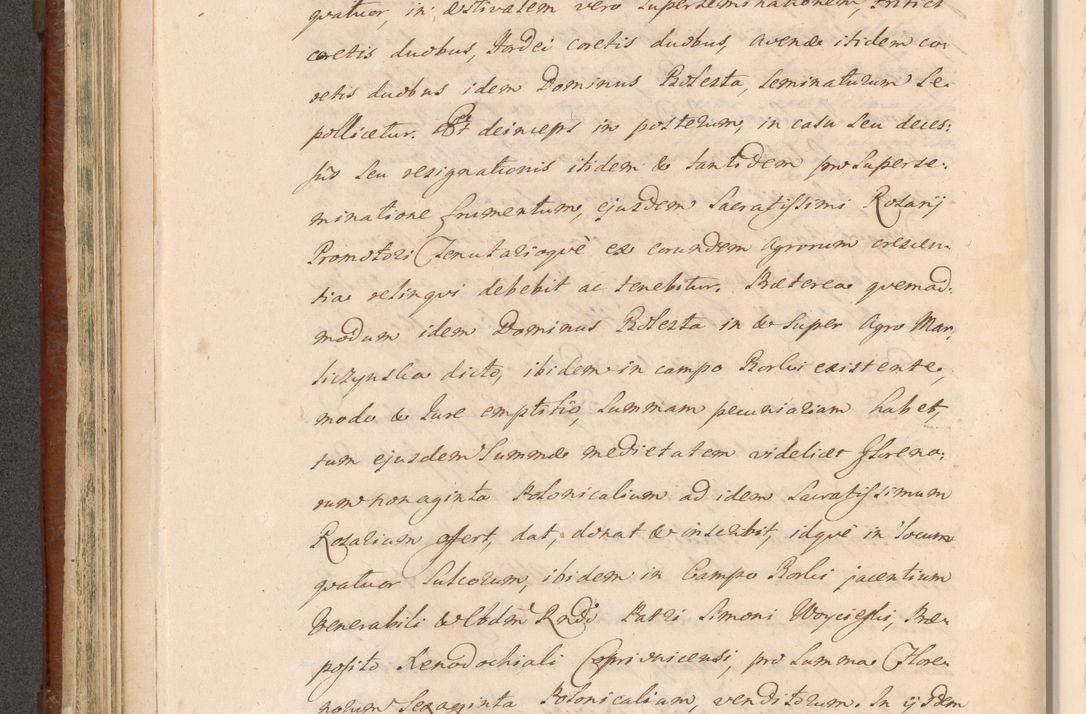 qvatuor, in æstivalem vero superseminationem, tritici
coretis duobus, Hordei coretis duobus, avenæ itidem co-
retis duobus idem Dominus Rolesta, seminaturum se-
pollicetur. Et deinceps in posterum, in casu seu deces-
sûs seu resignationis itidem & tantidem pro superse-
minatione frumentum, ejusdem Sacratissimi Rosarij
Promotori Tenutarioqvè ex eorundem agrorum crescen-
tia relinqvi debebit ac tenebitur. Præterea qvemad-
modum idem Dominus Rolesta in & super Agro Mar-
siczynska dicto, ibidem in campo Rorlei existente,
modo & Jure emptitio, summam pecuniariam habet,
tum ejusdem Summæ medietatem videlicet floreno-
rum nonaginta Polonicalium ad idem Sacratissimum
Rosarium offert, dat, donat & inscribit, idqvè in locum
qvatuor Sulcorum, ibidem in Campo Rorlei jacentium
Venerabili & Patri Simoni Præ-
posito Xenodochiali Coprivnicensi, pro summa Flore-
norum Sexaginta Polonicalium, venditorum. In ijsdem